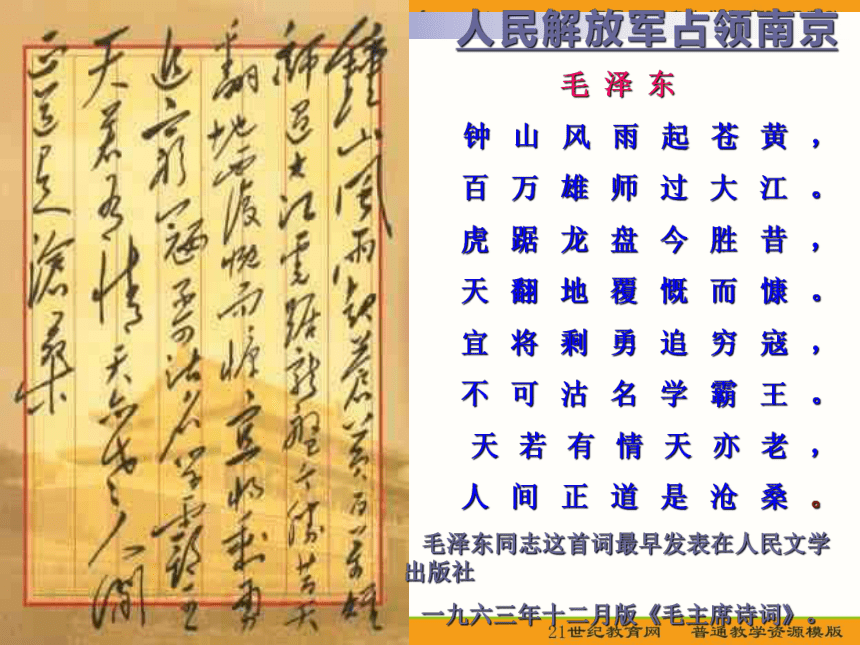 鐘山風雨起蒼黃百万雄
師過大江虎踞龍盤今勝昔天
翻地覆慨而慷宜將剩勇
追窮寇不可沽名學霸王
天若有情天亦老人間
正道是滄桑
人民解放军占领南京
毛泽东
钟山风雨起苍黄，
百万雄师过大江。
虎踞龙盘今胜昔，
天翻地覆慨而慷。
宜将剩勇追穷寇，
不可沽名学霸王。
天若有情天亦老，
人间正道是沧桑。
毛泽东同志这首词最早发表在人民文学
出版社
一九六三年十二月版《毛主席诗词》。
21世纪教育网 普通教学资源模版